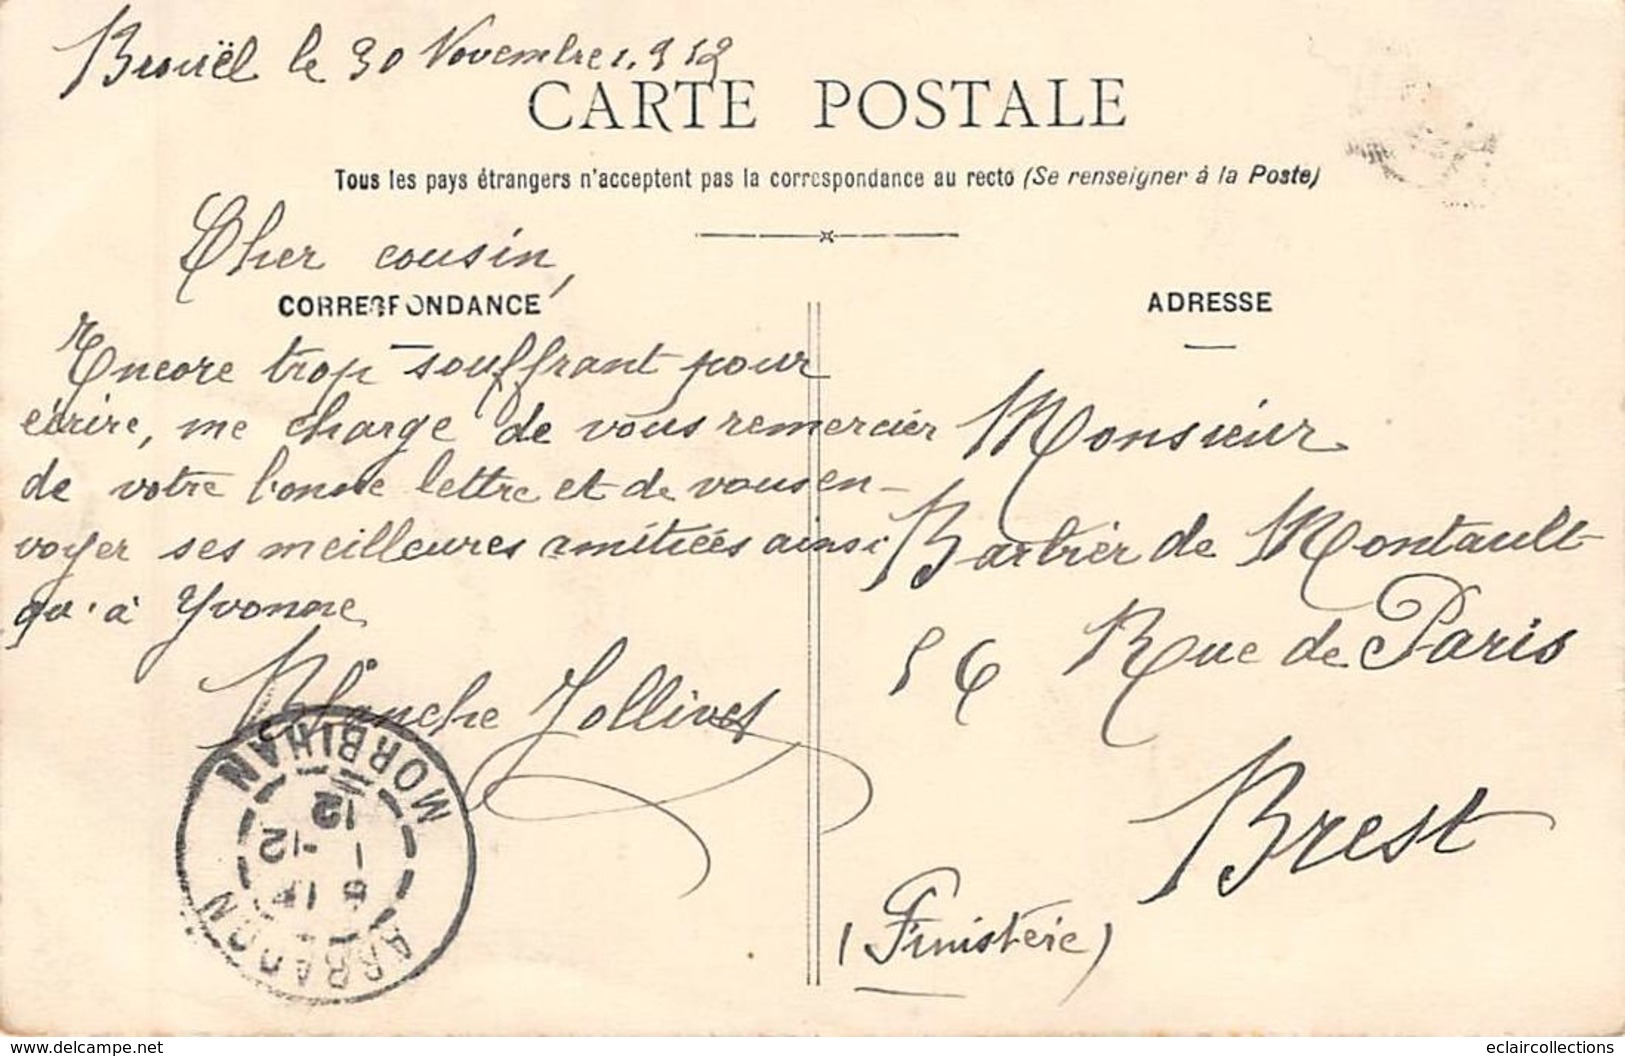 Brouël le 30 Novembre 1.912
CARTE POSTALE
Tous les pays étrangers n'acceptent pas la correspondance au recto (Se renseigner à la Poste)
Cher cousin,
CORRESPONDANCE
Encore trop souffrant pour
ecrire, me charge de vous remercier
de votre bonne lettre et de vous en-
voyer ses meilleures amitiées ainsi
qu'à Yvonne
Blanche Jollivet
MORBIHAN
12
1-12
ARRADON
ADRESSE
Monsieur
Barbier de Montault
56 Rue de Paris
Brest
(Finistère)
www.delcampe.net
eclaircollections